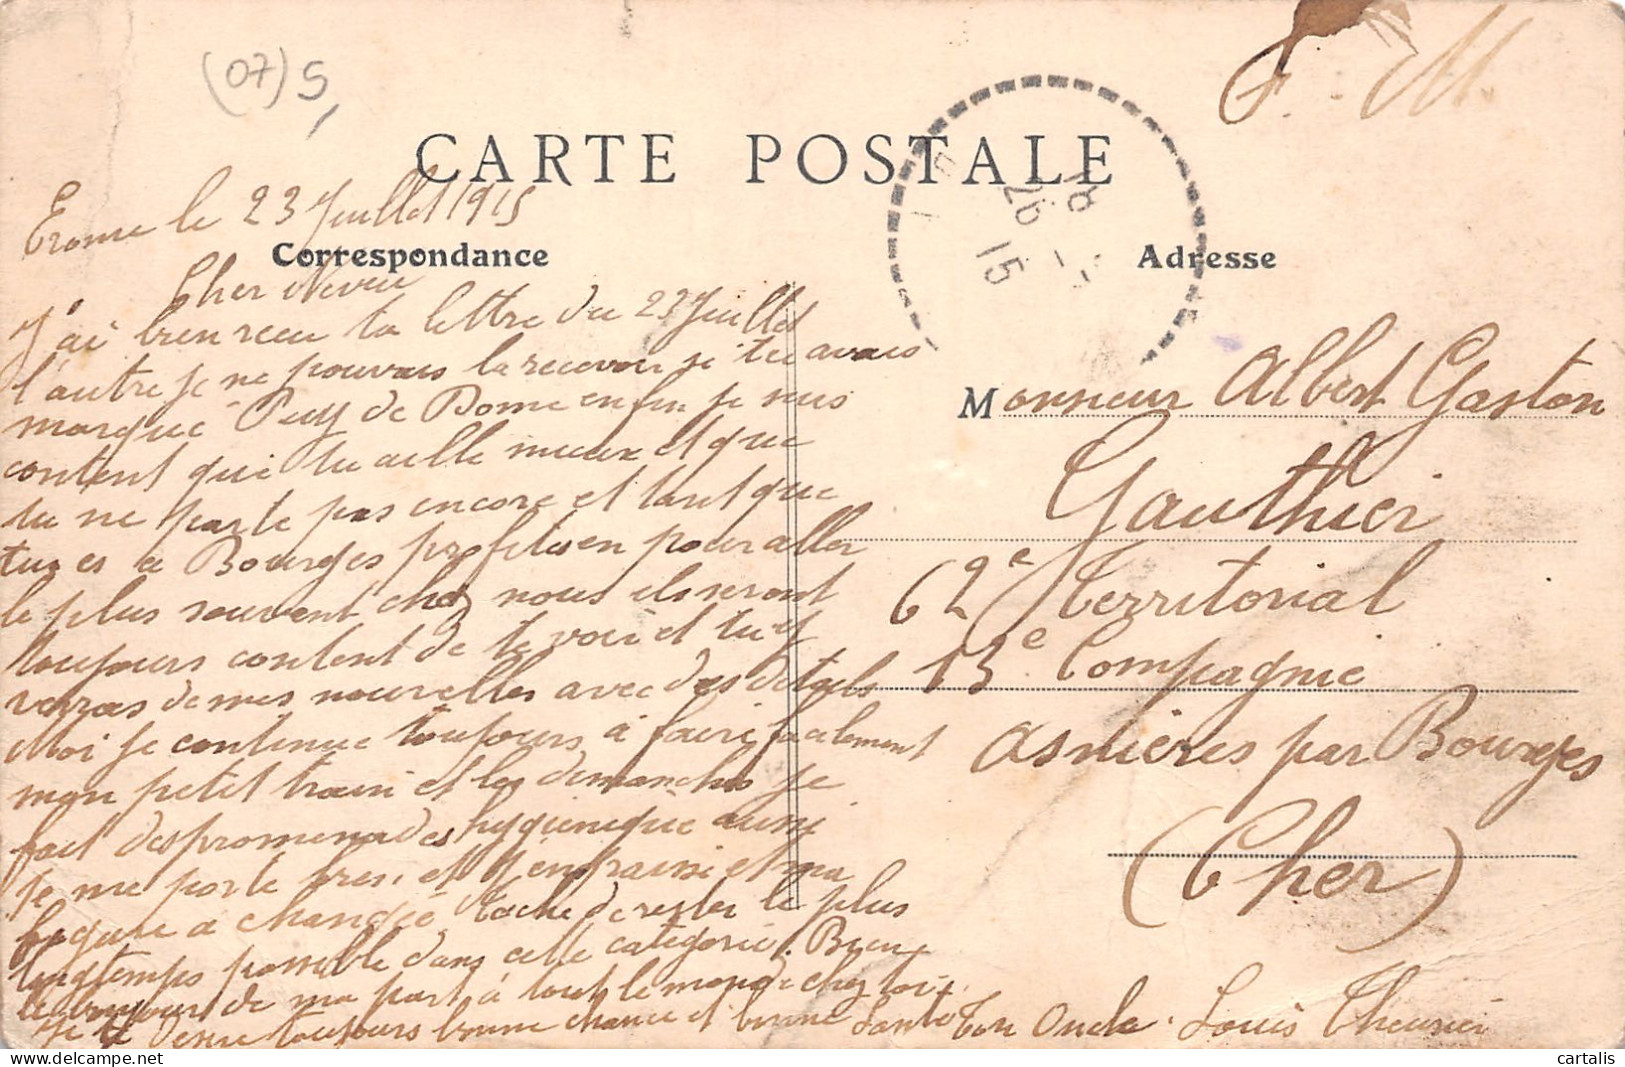 (07) S,
F. M.
CARTE POSTALE
26
15
Erome le 23 Juillet 1915
Correspondance
Adresse
Cher Neveu
J'ai bien recu ta lettre du 23 Juillet
l'autre je ne pouvais la recevoir si tu avais
marqué Puy de Dome enfin je suis
content qui tu aille mieux et que
tu ne parte pas encore et tant que
tu es a Bourges profites en pour aller
le plus souvent chez nous ils seront
toujours content de te voir et tu y
verras de mes nouvelles avec des details
Moi je continue toujours à faire facilement
mon petit train et les dimanches je
fait des promenades hygiénique aussi
je me porte bien et j'engraisse et ma
figure a changée Tache de rester le plus
longtemps possible dans cette categorie. Bien
le bonjour de ma part à tout le monde chez toi.
Je te desire toujours bonne chance et bonne santé Ton Oncle. Louis Theurier
Monsieur Albert Gaston
Gauthier
62e Territorial
13e Compagnie
Asnières par Bourges
(Cher)
cartalis